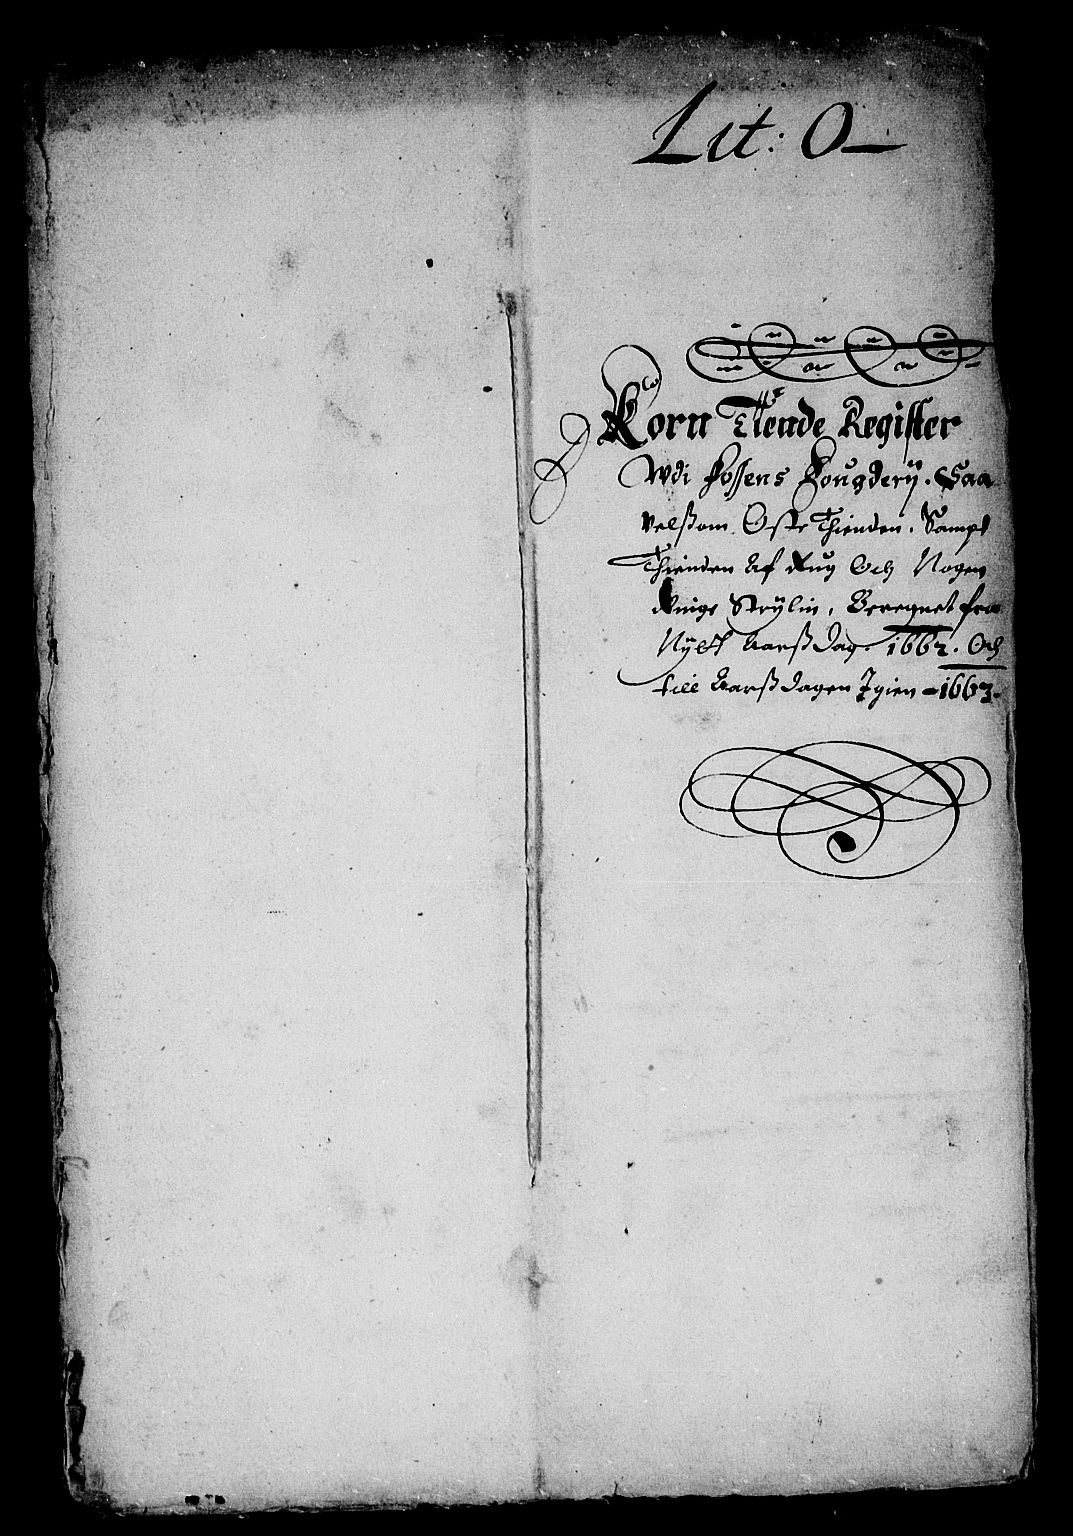 Lit: O
Korn Tiende Register
Wdi Fossens Fougderij. Saa
velsom Oste Thienden. Sampt
Thienden Af Rug Och Nogen
Ringe Strylin, Beregnet fra
Nyelf Aarsß dag. 1662. Och
till Aarsß dagen Igien 1663.